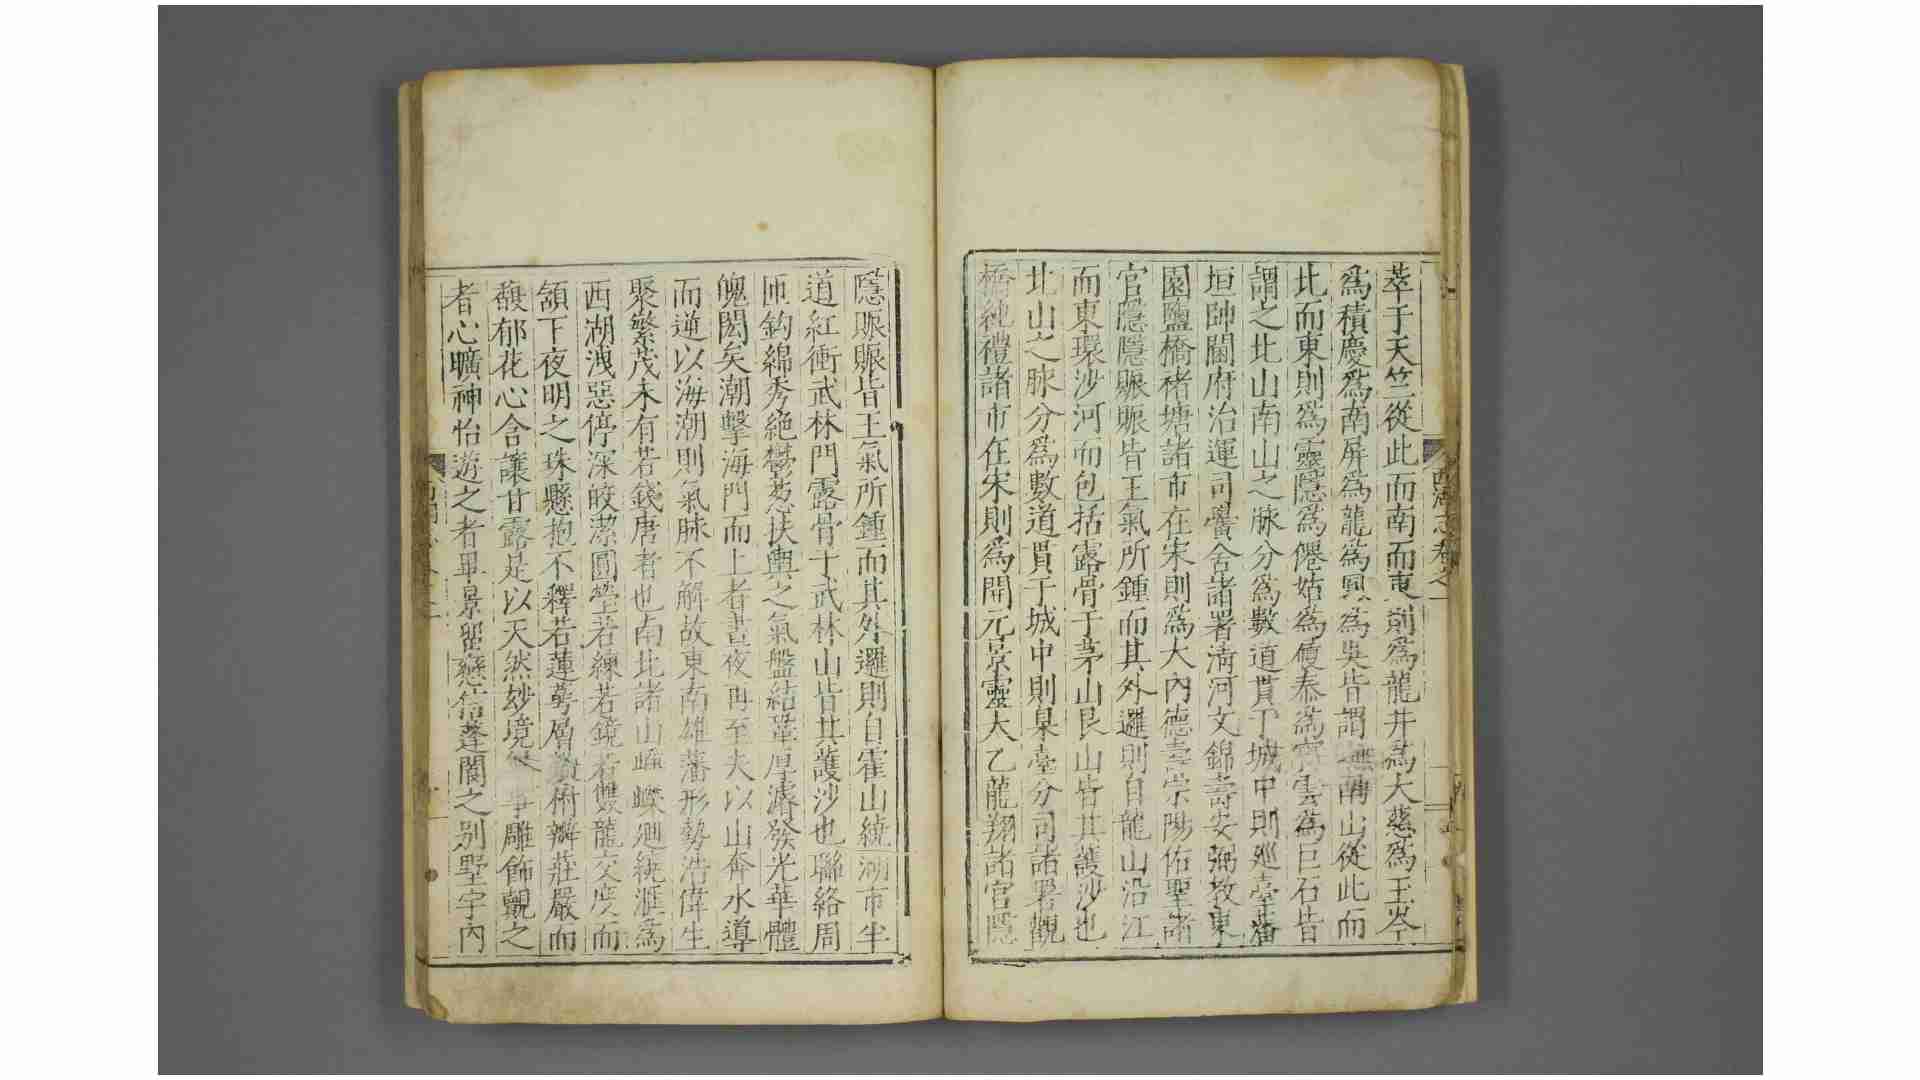 萃于天竺從此而南而東則爲龍井爲大慈爲玉岑
爲積慶爲南屏爲龍爲鳳爲吳皆謂之南山從此而
北而東則爲靈隱爲僊姑爲履泰爲寶雲爲巨石皆
謂之北山南山之脉分爲數道貫于城中則廵臺藩
垣帥閫府治運司黌舍諸署淸河文錦壽安弼教東
園鹽橋褚塘諸市在宋則爲大內德壽宗陽佑聖諸
官隱隱賑賑皆王氣所鍾而其外邏則自龍山沿江
而東環沙河而包括露骨于茅山艮山皆其護沙也
北山之脉分爲數道貫于城中則臬臺分司諸署觀
橋純禮諸市在宋則爲開元景靈太乙龍翔諸宮隱
西湖志卷之一
隱賑賑皆王氣所鍾而其外邏則自霍山繞湖市半
道紅衝武林門露骨于武林山皆其護沙也聯絡周
匝鈎綿秀絶鬱葱扶輿之氣盤結鞏厚濬發光華體
魄閎矣潮擊海門而上者晝夜再至夫以山奔水導
而逆以海潮則氣脉不解故東南雄藩形勢浩偉生
聚蘩茂未有若錢唐者也南北諸山崢嶸廻繞滙爲
西湖洩惡停深皎潔圓瑩若練若鏡若雙龍交度而
頷下夜明之珠懸抱不釋若蓮萼層敷俯瓣莊嚴而
馥郁花心含讓甘露是以天然妙境 事雕飾覿之
者心曠神怡遊之者畢景留戀信蓬閬之别墅宇內